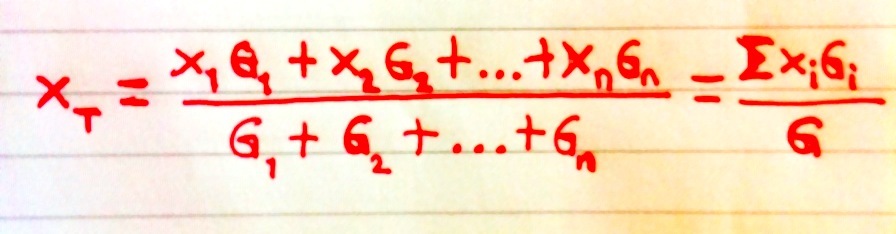 x_T = (x₁G₁ + x₂G₂ + ... + xₙGₙ) / (G₁ + G₂ + ... + Gₙ) = ΣxᵢGᵢ / G